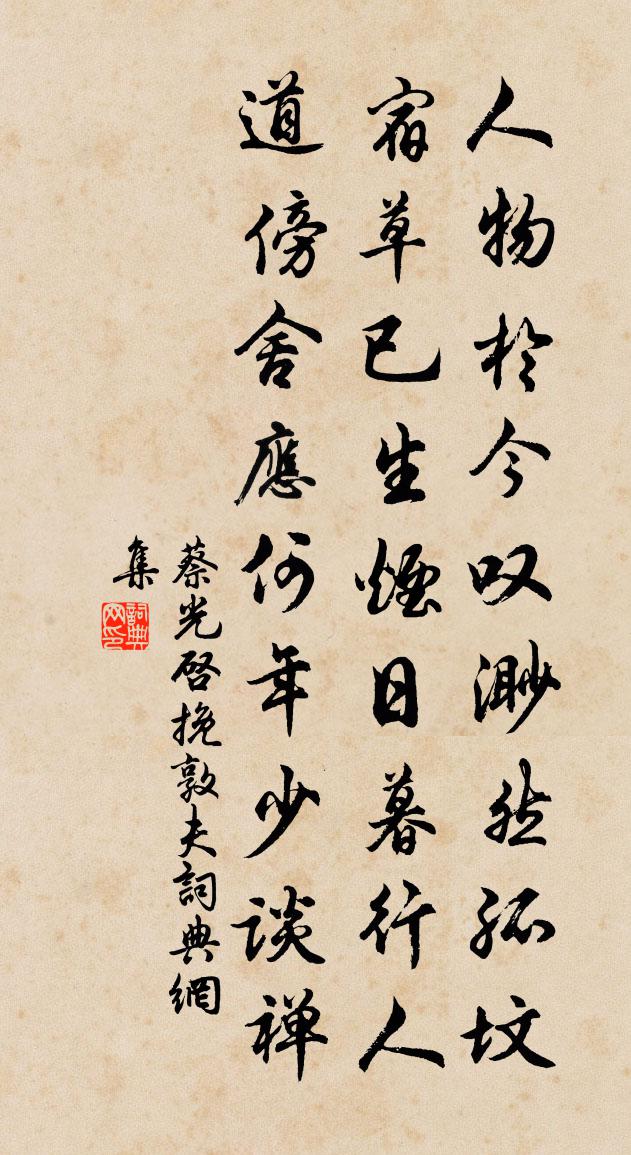 人物於今叹渺然孤坟
宿草已生烟日暮行人
道傍舍應何年少谈禅
蔡光启挽敦夫詞典網
集
詞典網印